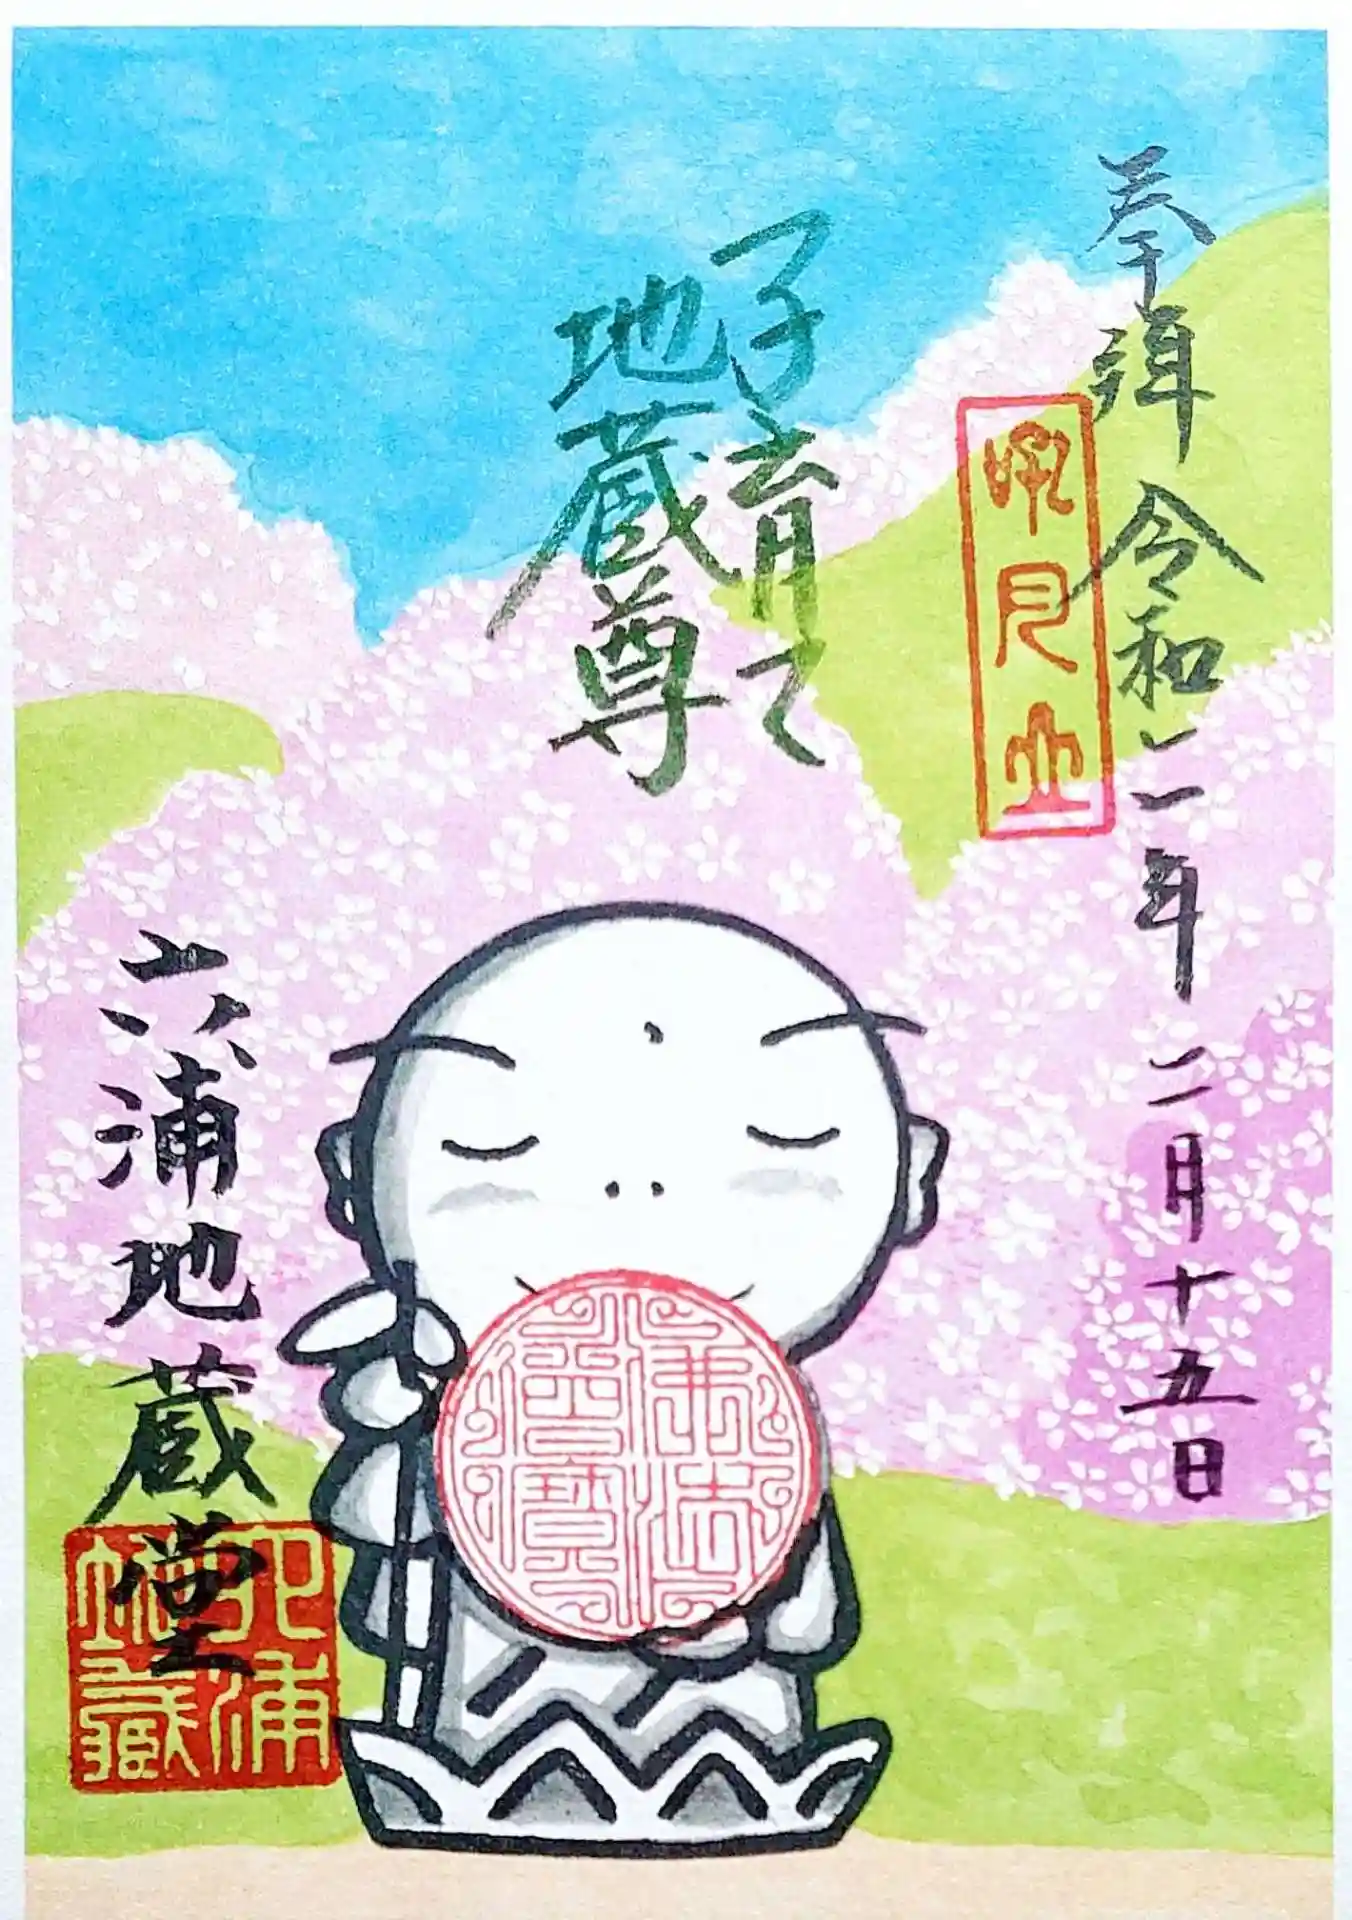 奉拝 令和二年二月十五日
子育て
地蔵尊
佛法僧寶
六浦地蔵堂
六浦地蔵